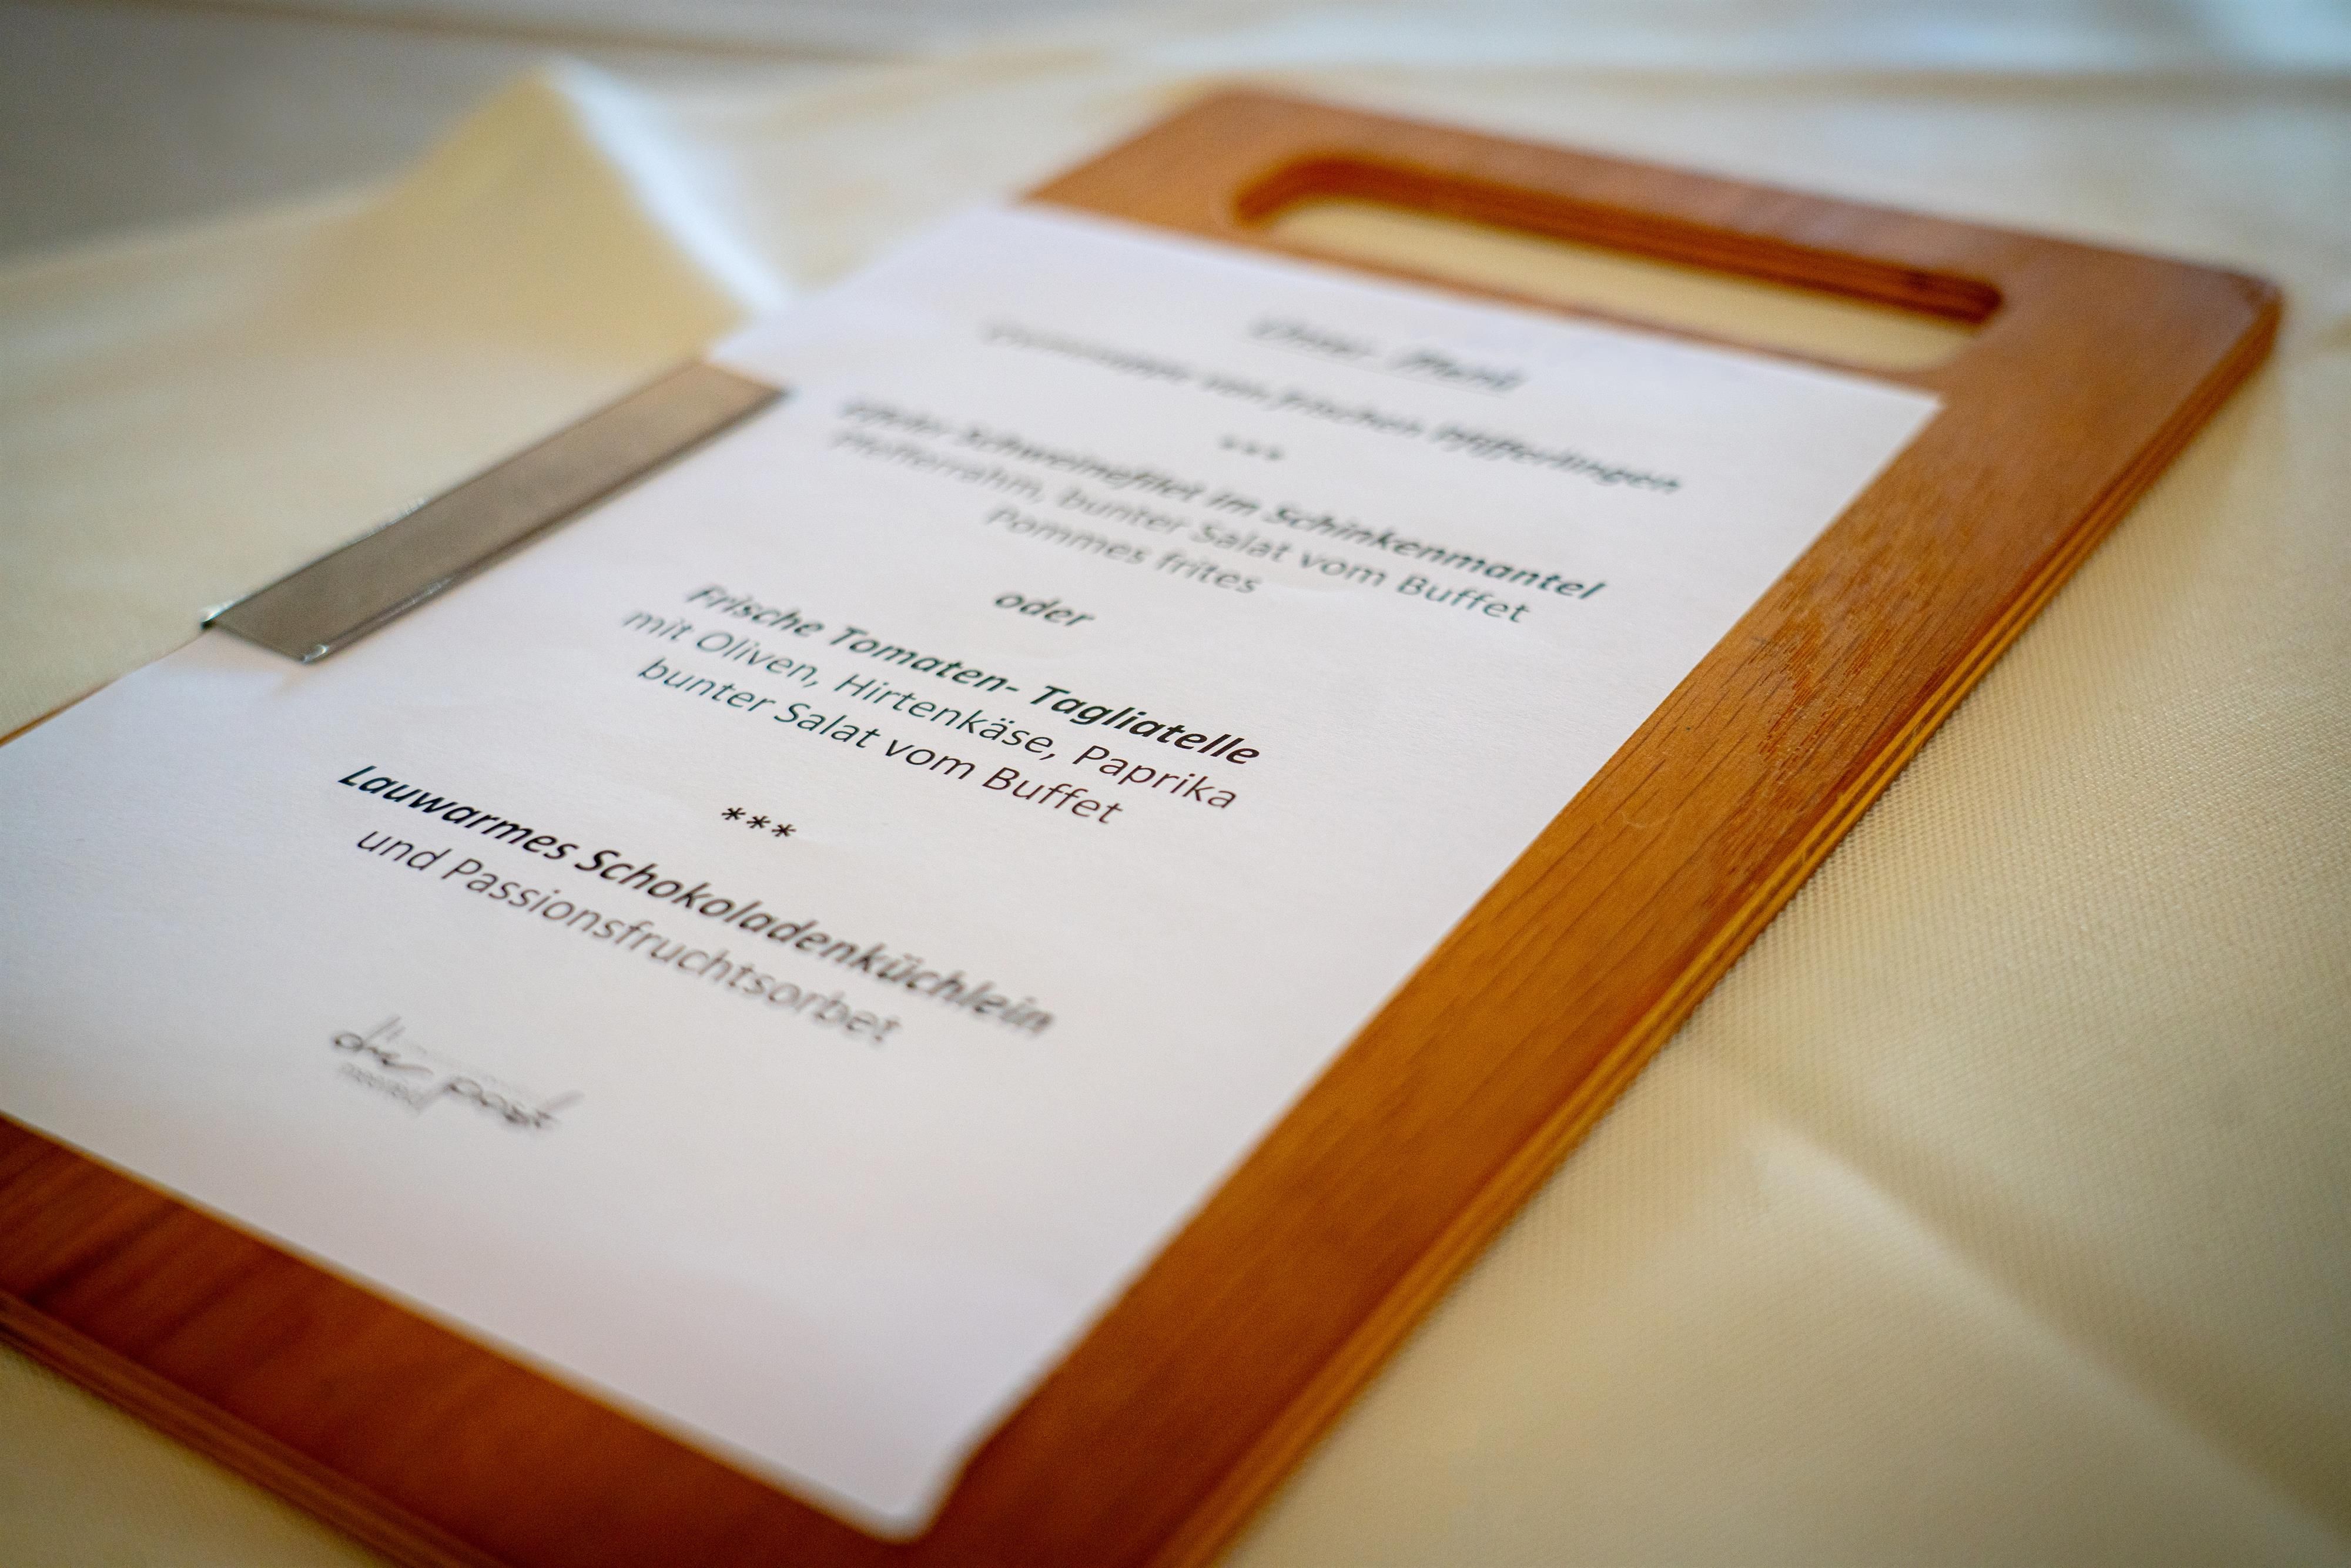 Unser Menü
Cremesuppe von frischen Pfifferlingen
***
Eifeler Schweinefilet im Schinkenmantel
Pfefferrahm, bunter Salat vom Buffet
Pommes frites
oder
Frische Tomaten- Tagliatelle
mit Oliven, Hirtenkäse, Paprika
bunter Salat vom Buffet
***
Lauwarmes Schokoladenküchlein
und Passionsfruchtsorbet
die post